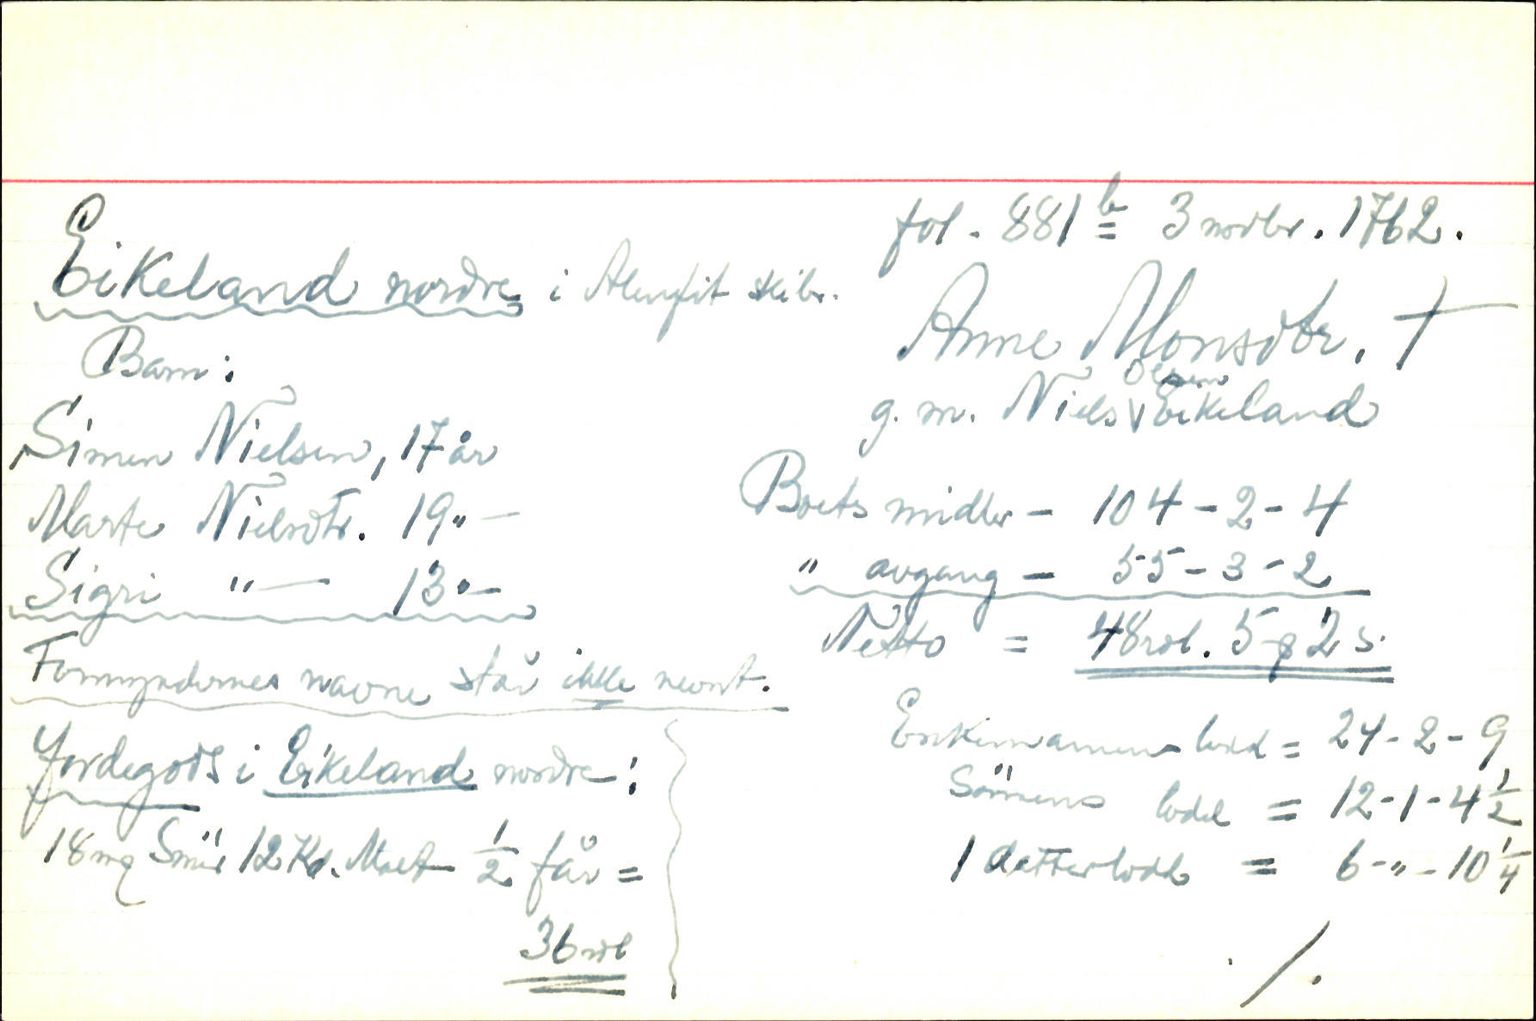 fol. 881 b 3 novbr. 1762.
Eikeland nordre i Alenfit skibr.
Anne Monsdtr. †
g. m. Niels Olsen Eikeland
Barn:
Simen Nielsen, 17 år
Marte Nielsdtr. 19 " —
Sigri " — 13 " —
Formyndernes navne står ikke nevnt.
Jordegods i Eikeland nordre:
18 mg Smör 12 Kd. Malt ½ får =
36 rdl
Boets midler - 104 - 2 - 4
" avgang - 55 - 3 - 2
Netto = 48 rdl. 5 q 2 s.
Enkemannens lodd = 24 - 2 - 9
Sönnens lodd = 12 - 1 - 4 ½
1 datterlodd = 6 - " - 10 ¼
./.